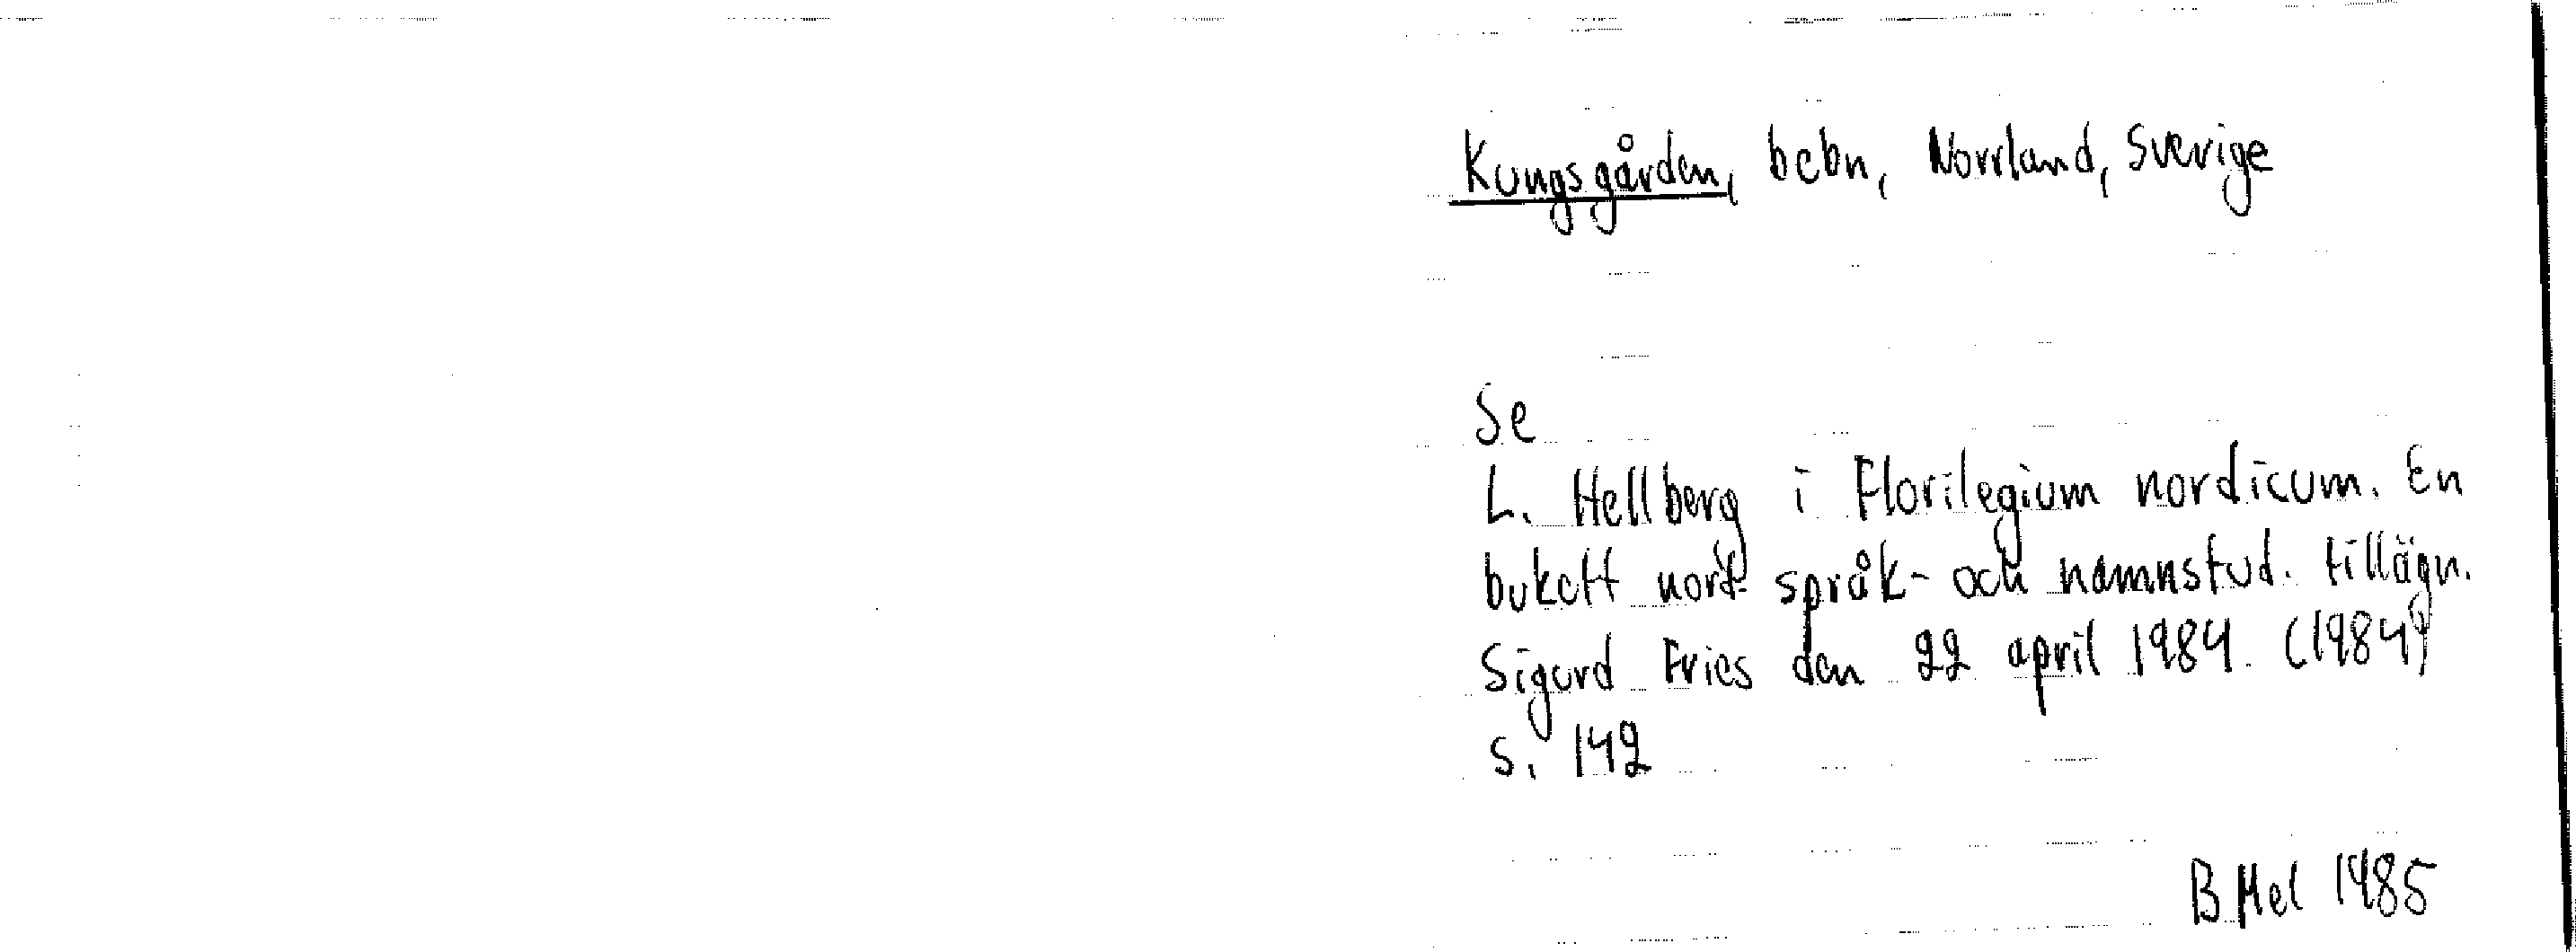 Kungsgården, bebn, Norrland, Sverige
Se
L. Hellberg i Florilegium nordicum. En
bukett nord. språk- och namnstud. tillägn.
Sigurd Fries den 22 april 1984. (1984)
s. 142
B Mel 1985